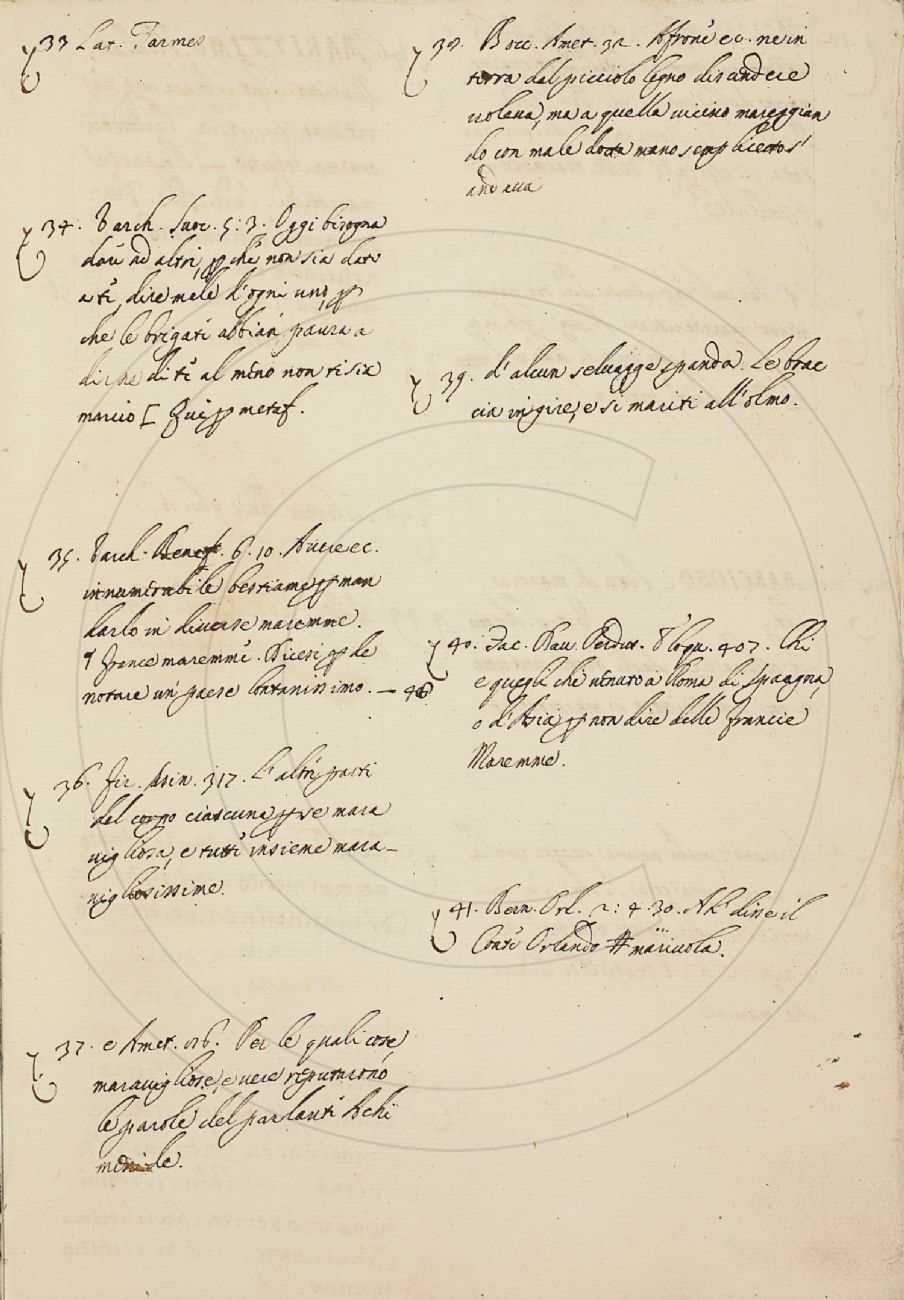 33 Lat. Tarmes
34. Varch. Suoc. 5: 3. Oggi bisogna
dare ad altri, p che non sia dato
a te, dire male d'ogni uno, p
che le brigate abbian paura a
dire di te al meno non ti sia
marcio [ Qui p metaf.
35. Varch. Benef. 6. 10. Avere ec.
innumerabile bestiame p man
darlo in diverse maremme.
¶ france maremme. Dicesi p de
notare un paese lontanissimo. — 40
36. Fir. Asin. 317. L'altre parti
del corpo ciascuna p se mara
vigliosa, e tutte insieme mara-
vigliosissime.
37. e Amet. 86. Per le quali cose
maravigliose, e vere reputarono
le parole del parlante Achi
menide.
38. Bocc. Amet. 32. Affrone ec. ne in
terra del picciolo legno discendere
voleva, ma a quella vicino mareggian
do con male dotta mano semplicetto s'
andava
39. d'alcun selvagge spanda. Le brac
cia in gire, e si mariti all'olmo.
40. Fac. Dav. Perdut. Eloqu. 407. Chi
e quegli che venuto a Roma di Spagna,
o d'Asia p non dire delle Francie
Maremme.
41. Bern. Orl. 2: 4. 30. Ah disse il
Conte Orlando # mariuola.